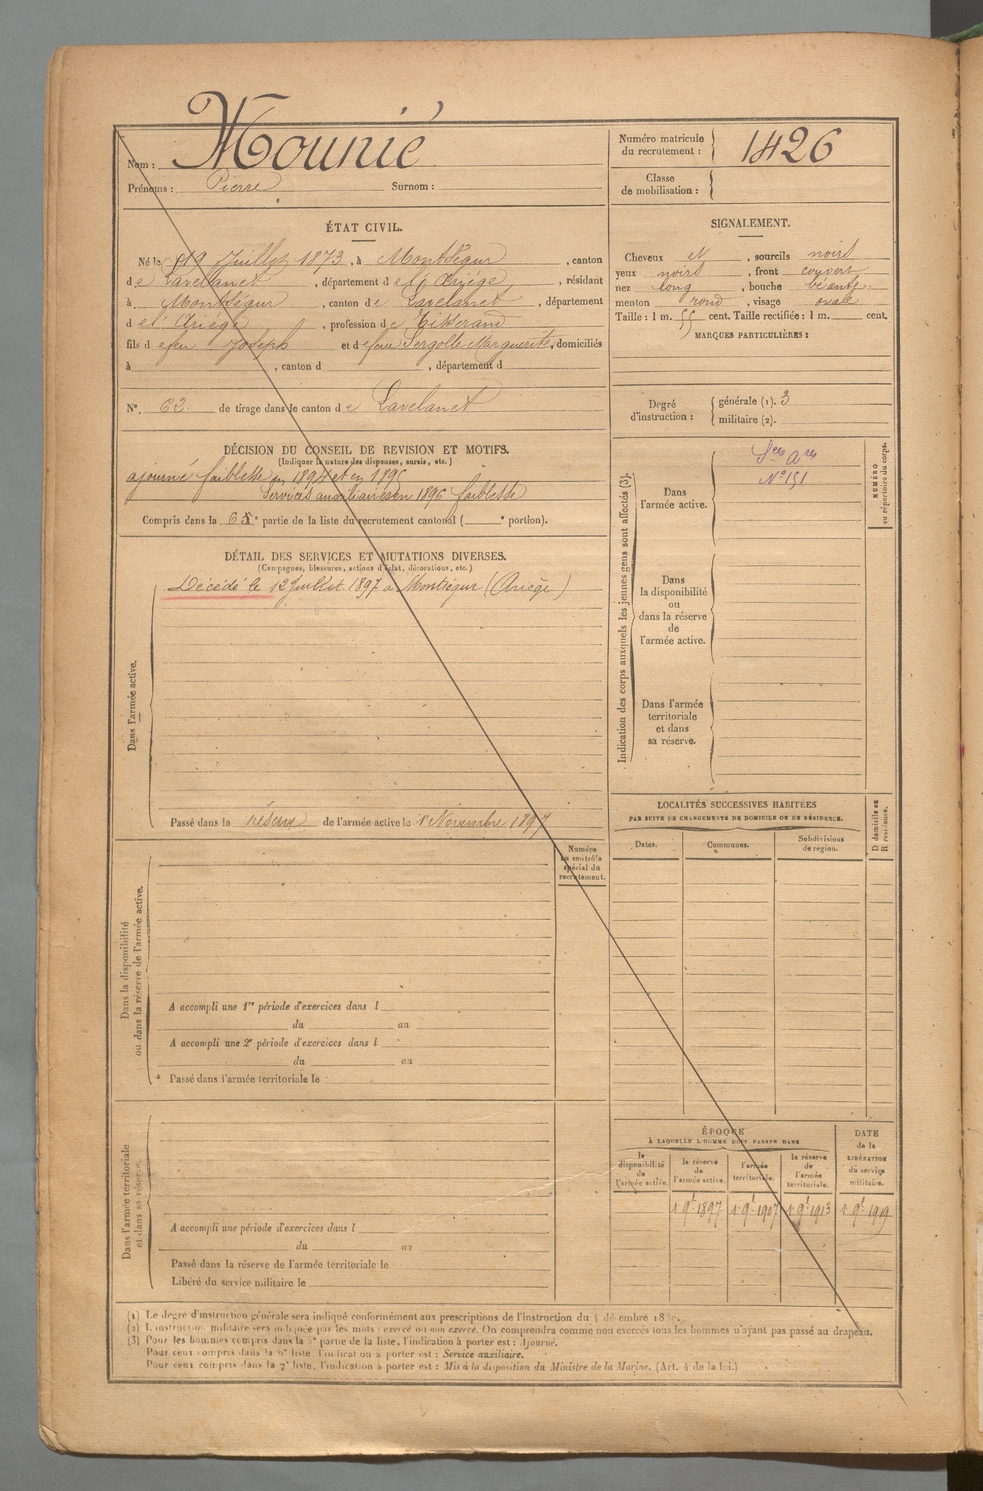 Nom : Mounié
Prénoms : Pierre Surnom :
Numéro matricule
du recrutement : 1426
Classe
de mobilisation :
ÉTAT CIVIL.
Né le 19 Juillet 1873, à Montségur, canton
de Lavelanet, département de l'Ariège, résidant
à Montségur, canton de Lavelanet, département
de l'Ariège, profession de Tisserand
fils de feu Joseph et de feue Sergolle Marguerite, domiciliés
à , canton d , département d
N° 62 de tirage dans le canton de Lavelanet
SIGNALEMENT.
Cheveux et , sourcils noirs
yeux noirs , front couvert
nez long , bouche béante
menton rond , visage ovale
Taille : 1 m. 55 cent. Taille rectifiée : 1 m. cent.
MARQUES PARTICULIÈRES :
Degré
d'instruction :
générale (1). 3
militaire (2).
DÉCISION DU CONSEIL DE REVISION ET MOTIFS.
(Indiquer la nature des dispenses, sursis, etc.)
ajourné faiblesse en 1894 et en 1895
Services auxiliaires en 1896 faiblesse
Compris dans la e partie de la liste du recrutement cantonal ( e portion).
DÉTAIL DES SERVICES ET MUTATIONS DIVERSES.
(Campagnes, blessures, actions d'éclat, décorations, etc.)
Dans l'armée active.
Décédé le 12 Juillet 1897 à Montségur (Ariège)
Passé dans la réserve de l'armée active le 1r Novembre 1897
Indication des corps auxquels les jeunes gens sont affectés (3).
Dans
l'armée active.
Sces Ares
N° 151
Dans
la disponibilité
ou
dans la réserve
de
l'armée active.
Dans l'armée
territoriale
et dans
sa réserve.
NUMÉRO
au répertoire du corps.
LOCALITÉS SUCCESSIVES HABITÉES
PAR SUITE DE CHANGEMENTS DE DOMICILE OU DE RÉSIDENCE.
Dates.
Communes.
Subdivisions
de région.
D domicile ou
R résidence.
Numéro
au contrôle
spécial du
recrutement.
Dans la disponibilité
ou dans la réserve de l'armée active.
A accompli une 1re période d'exercices dans l
du au
A accompli une 2e période d'exercices dans l
du au
Passé dans l'armée territoriale le
Dans l'armée territoriale
et dans sa réserve.
A accompli une période d'exercices dans l
du au
Passé dans la réserve de l'armée territoriale le
Libéré du service militaire le
ÉPOQUE
À LAQUELLE L'HOMME DOIT PASSER DANS
la
disponibilité
de
l'armée active.
la réserve
de
l'armée active.
l'armée
territoriale.
la réserve
de
l'armée
territoriale.
DATE
de la
LIBÉRATION
du service
militaire.
1r 9bre 1897 1r 9bre 1907 1r 9bre 1913 1r 9bre 1919
(1) Le degré d'instruction générale sera indiqué conformément aux prescriptions de l'Instruction du 4 décembre
(2) L'instruction militaire sera indiquée par les mots : exercé ou non exercé. On comprendra comme non exercés tous les hommes n'ayant pas passé au drapeau.
(3) Pour les hommes compris dans la partie de la liste, l'indication à porter est : Ajourné.
Pour ceux compris dans la liste, l'indication à porter est : Service auxiliaire.
Pour ceux compris dans la 7e liste, l'indication à porter est : Mis à la disposition du Ministre de la Marine. (Art. 4 de la loi.)